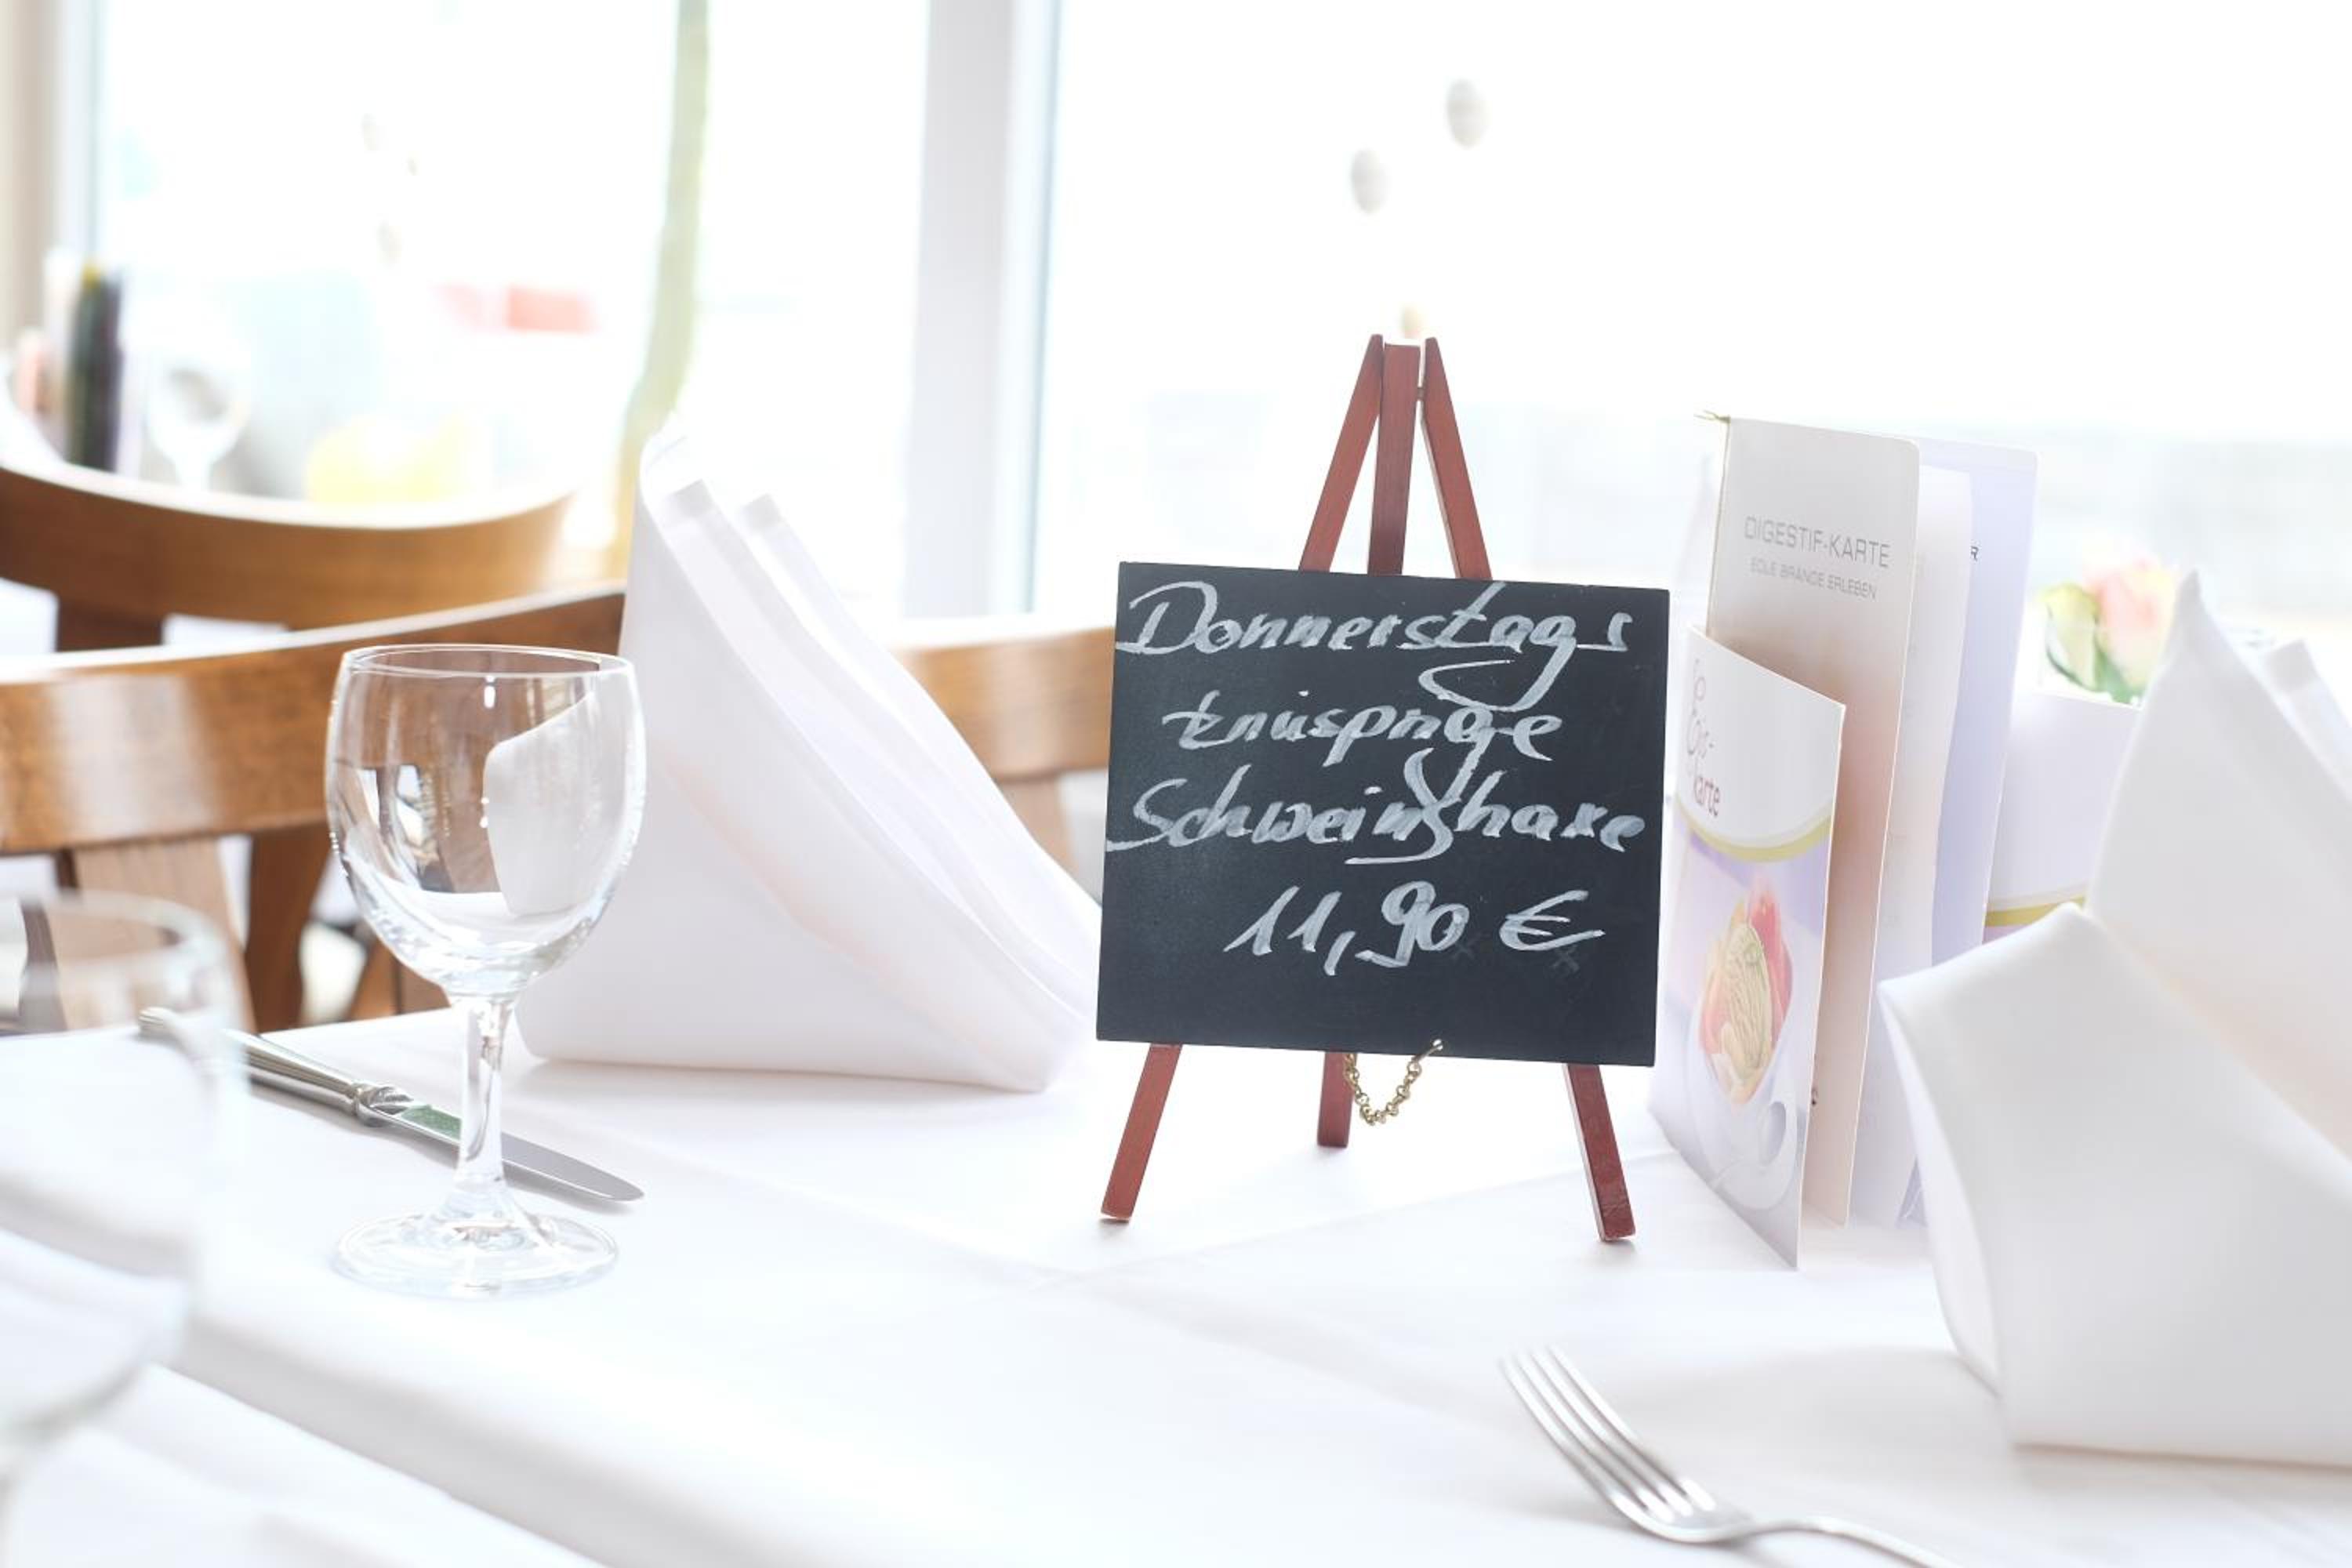 Donnerstags
knusprige
Schweinshaxe
11,90 €
DIGESTIF-KARTE
EDLE BRÄNDE ERLEBEN
Eis-
karte
R